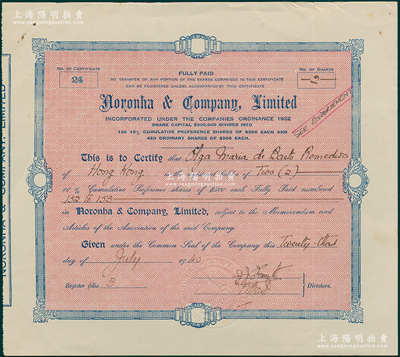 上海陽明拍賣
SHANGHAI YANGMING AUCTION
No. OF CERTIFICATE
24
No. OF SHARES
2
FULLY PAID
NO TRANSFER OF ANY PORTION OF THE SHARES COMPRISED IN THIS CERTIFICATE
CAN BE REGISTERED UNLESS ACCOMPANIED BY THIS CERTIFICATE
Noronha & Company, Limited
INCORPORATED UNDER THE COMPANIES ORDINANCE 1932
SHARE CAPITAL $300,000 DIVIDED INTO
180 10% CUMULATIVE PREFERENCE SHARES OF $500 EACH AND
420 ORDINARY SHARES OF $500 EACH.
SEE ENDORSEMENT
This is to Certify that Olga Maria de Remedios
of Hong Kong of Two (2)
10% Cumulative Preference shares of $500 each Fully Paid numbered
152 to 153
in Noronha & Company, Limited, subject to the Memorandum and
Articles of the Association of the said Company.
Given under the Common Seal of the Company this Twenty-third
day of July 1940
Register folio 3
Directors.
NORONHA & COMPANY, LIMITED
上海陽明拍賣